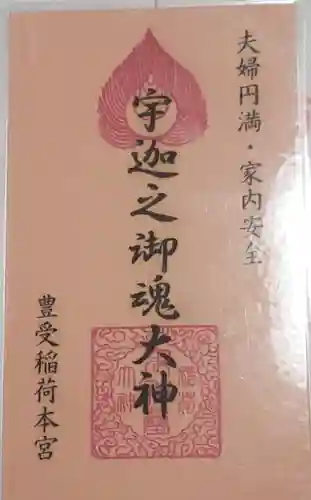 夫婦円満・家内安全
宇迦之御魂大神
豊受稲荷本宮